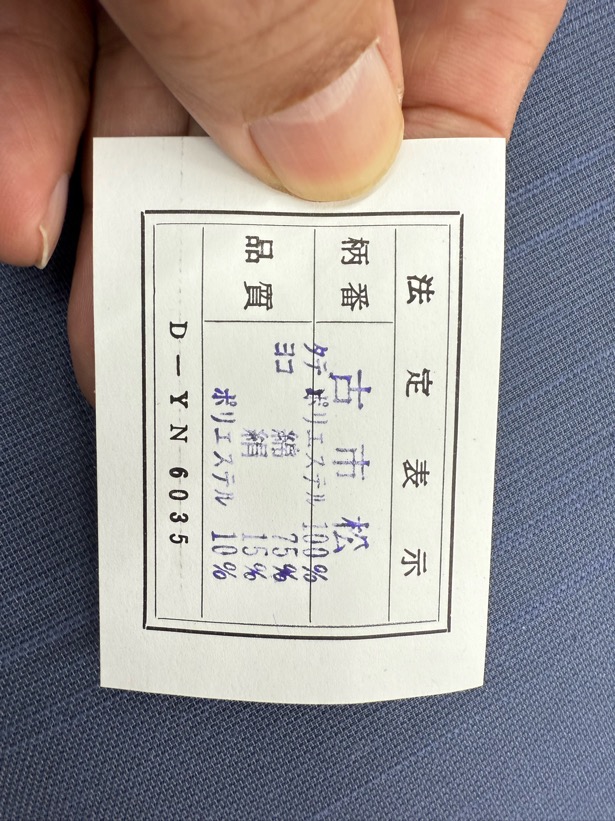 法定表示
柄番 古市松
品質 タテ ポリエステル 100%
ヨコ 綿 75%
絹 15%
ポリエステル 10%
D-YN6035